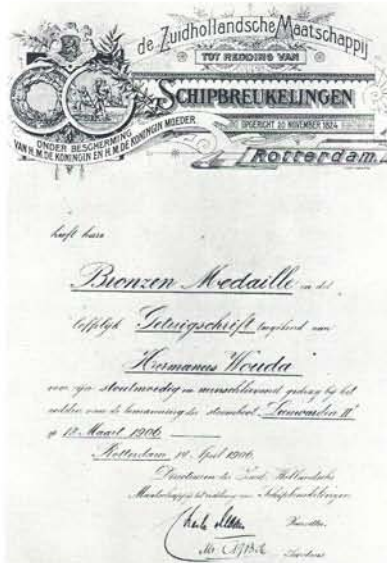 de Zuidhollandsche Maatschappij
TOT REDDING VAN
SCHIPBREUKELINGEN
ONDER BESCHERMING
VAN H.M. DE KONINGIN EN H.M. DE KONINGIN MOEDER
OPGERICHT 20 NOVEMBER 1824
Rotterdam
heeft hare
Bronzen Medaille en het
loffelijk Getuigschrift toegekend aan
Hermanus Wouda
voor zijn stoutmoedig en menschlievend gedrag bij het
redden van de bemanning der stoomboot "Leeuwarden II"
op 13 Maart 1906
Rotterdam, April 1906.
Directeuren der Zuid Hollandsche
Maatschappij tot redding van Schipbreukelingen
Voorzitter.